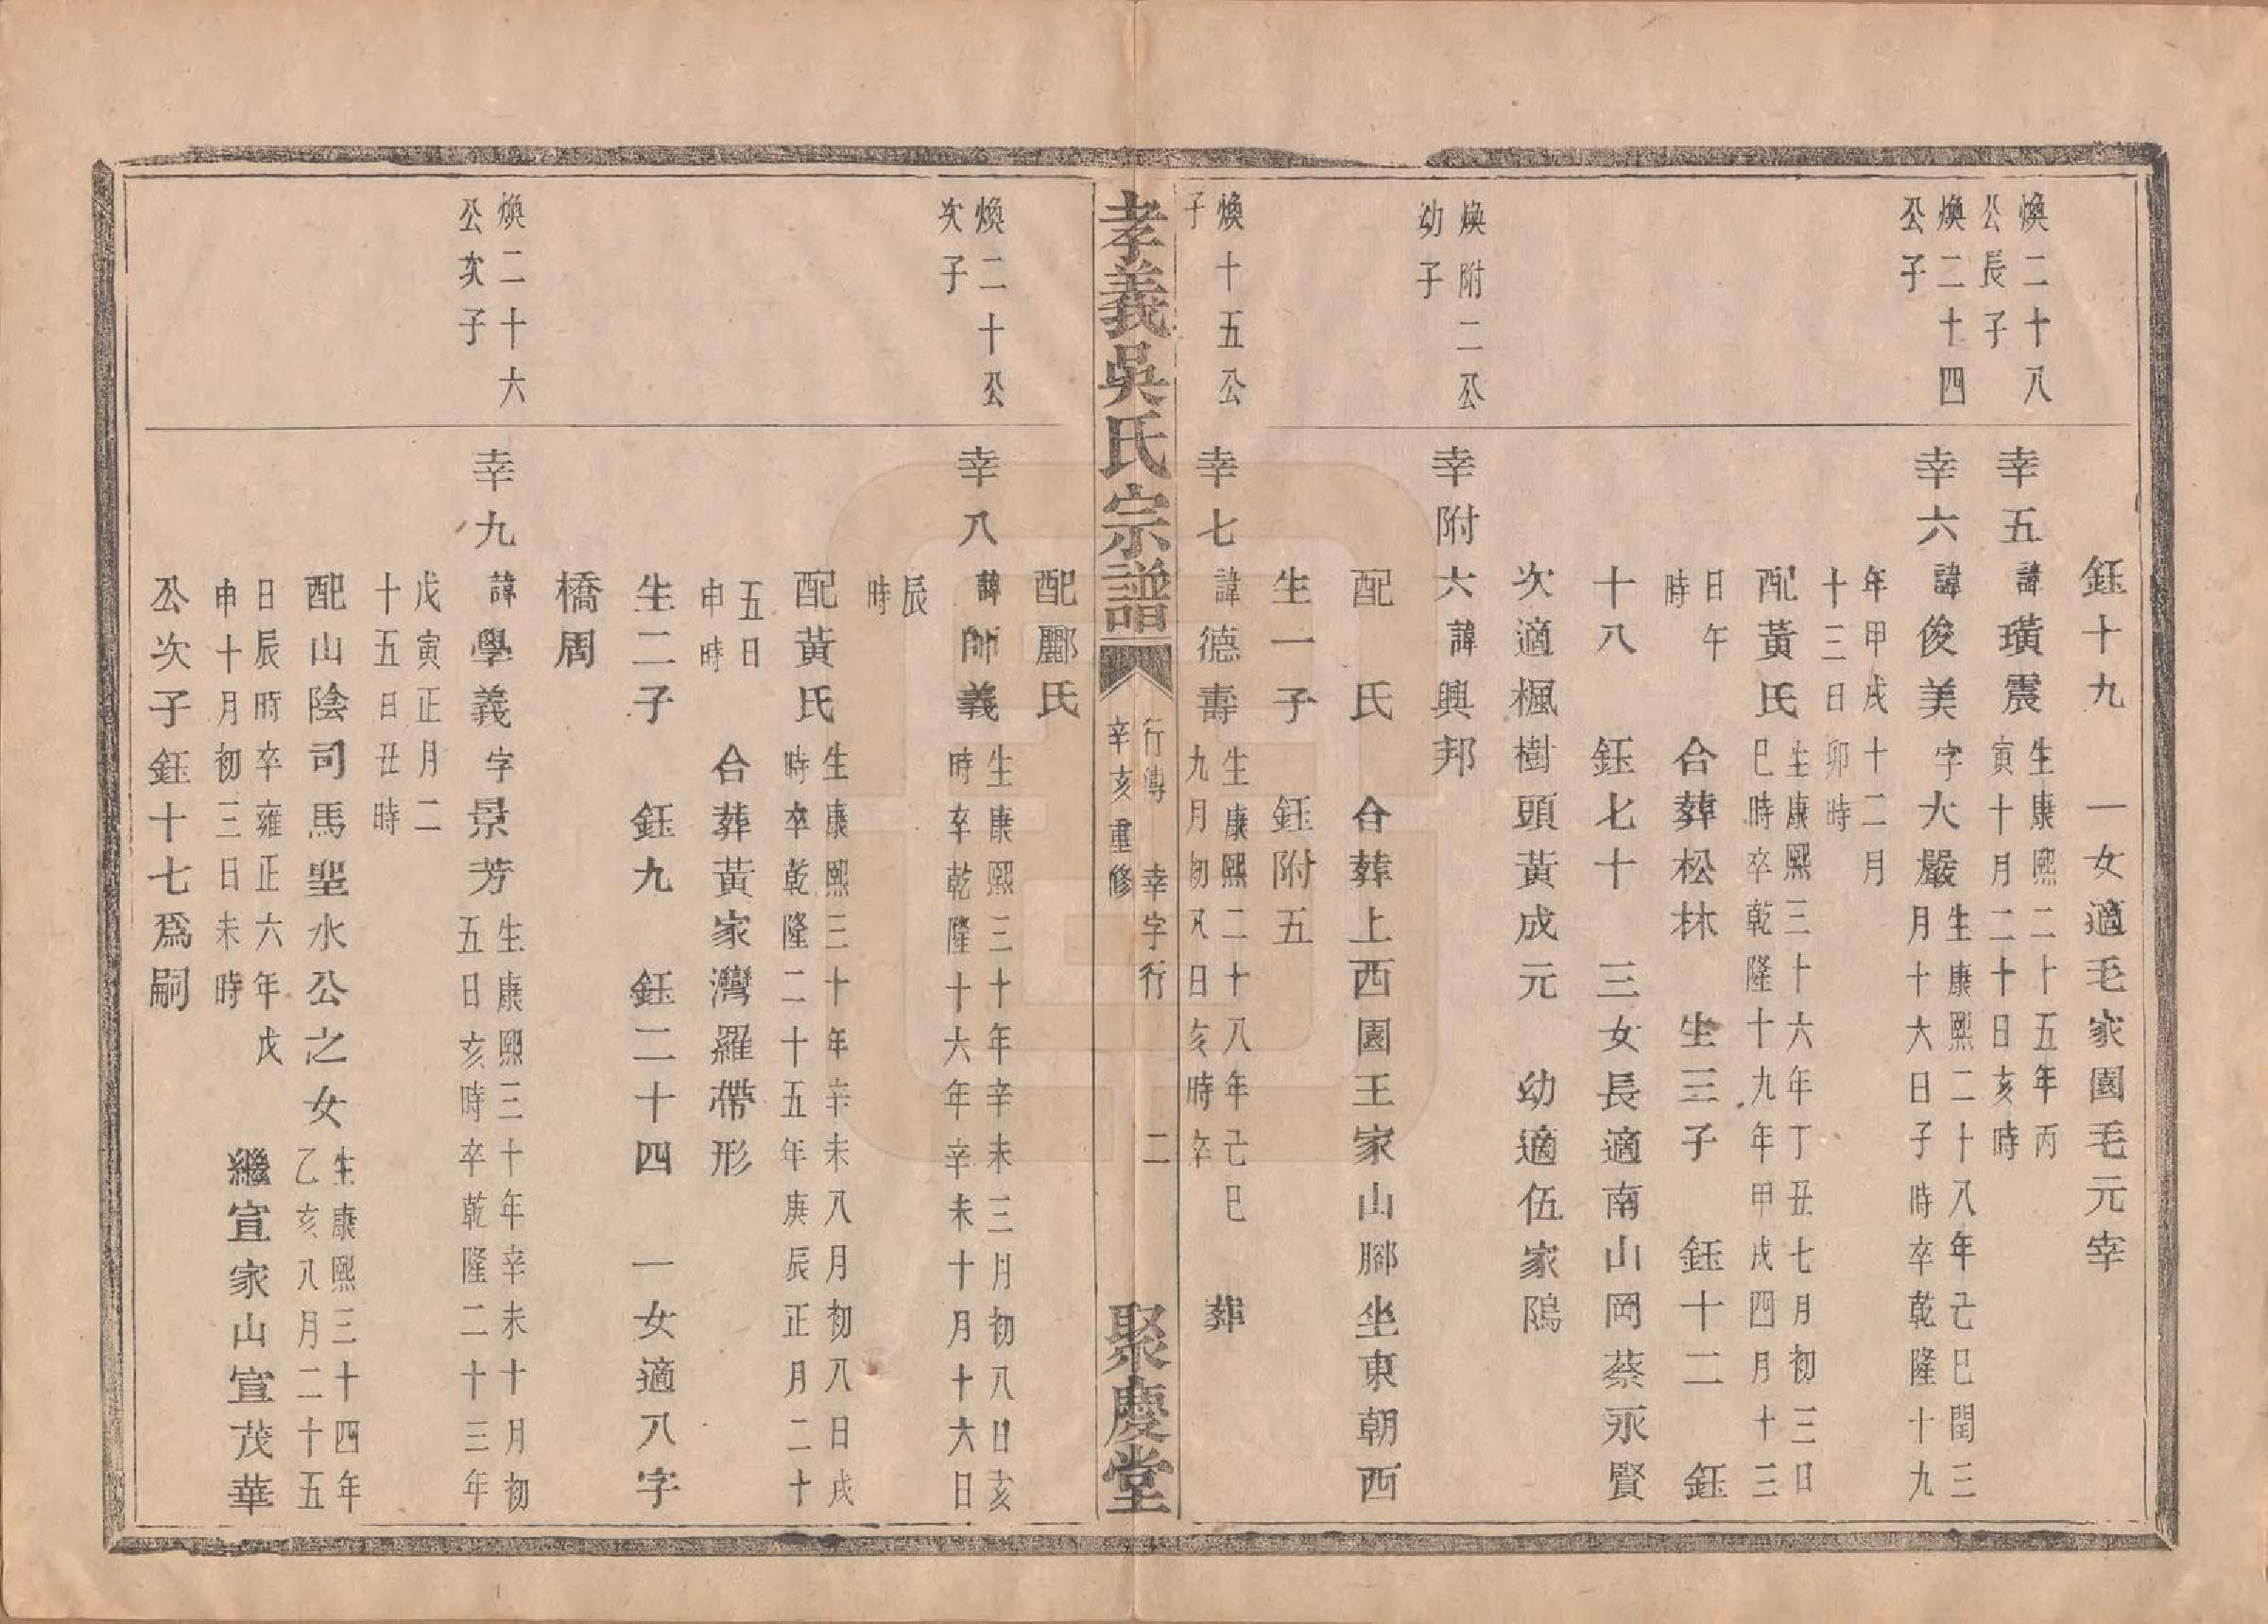 鈺十九　一女適毛家園毛元幸
煥二十八
公長子
幸五諱璜震
生康熙二十五年丙
寅十月二十日亥時
煥二十四
公子
幸六諱俊美字大嚴
生康熙二十八年己巳閏三
月十六日子時卒乾隆十九
年甲戌十二月
十三日卯時
配黃氏
生康熙三十六年丁丑七月初三日
巳時卒乾隆十九年甲戌四月十三
日午
時
合葬松林　生三子　鈺十二　鈺
十八　鈺七十　三女長適南山岡蔡永賢
次適楓樹頭黃成元　幼適伍家隖
煥附二公
幼子
幸附六諱興邦
配　氏　合葬上西園王家山腳坐東朝西
生一子　鈺附五
煥十五公
子
幸七諱德壽
生康熙二十八年己巳
九月初八日亥時卒
葬
孝義吳氏宗譜
行傳　幸字行　二
辛亥重修
聚慶堂
配酈氏
煥二十公
次子
幸八諱師義
生康熙三十年辛未三月初八日亥
時卒乾隆十六年辛未十月十六日
辰
時
配黃氏
生康熙三十年辛未八月初八日戌
時卒乾隆二十五年庚辰正月二十
五日
申時
合葬黃家灣羅帶形
生二子　鈺九　鈺二十四　一女適八字
橋周
煥二十六
公次子
幸九諱學義字景芳
生康熙三十年辛未十月初
五日亥時卒乾隆二十三年
戊寅正月二
十五日丑時
配山陰司馬聖水公之女
生康熙三十四年
乙亥八月二十五
日辰時卒雍正六年戊
申十月初三日未時
繼宣家山宣茂華
公次子鈺十七爲嗣